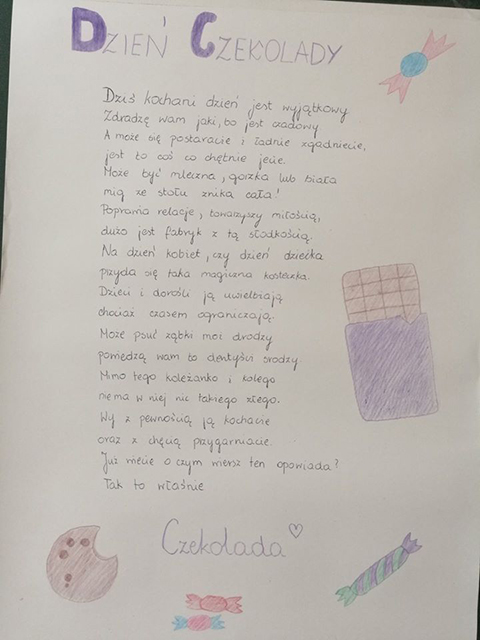 DZIEŃ CZEKOLADY
Dziś kochani dzień jest wyjątkowy
Zdradzę wam jaki, bo jest czadowy
A może się postaracie i ładnie zgadniecie,
jest to coś co chętnie jecie.
Może być mleczna, gorzka lub biała
mig ze stołu znika cała!
Poprawia relacje, towarzyszy miłością,
dużo jest fabryk z tą słodkością.
Na dzień kobiet, czy dzień dziecka
przyda się taka magiczna kosteczka.
Dzieci i dorośli ją uwielbiają
chociaż czasem ograniczają.
Może psuć ząbki moi drodzy
powiedzą wam to dentyści srodzy.
Mimo tego koleżanko i kolego
nie ma w niej nic takiego złego.
Wy z pewnością ją kochacie
oraz z chęcią przygarniacie.
Już wiecie o czym wiersz ten opowiada?
Tak to właśnie
Czekolada